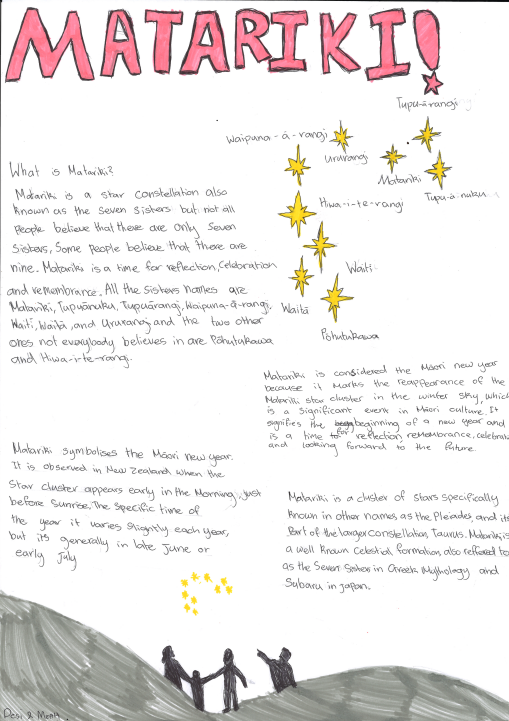 MATARIKI!
Tupu-ā-rangi
Waipuna-ā-rangi
Ururangi
Matariki
Tupu-ā-nuku
Hiwa-i-te-rangi
Waiti
Waitā
Pōhutukawa
What is Matariki?
Matariki is a star constellation also
known as the seven sisters but not all
people believe that there are only seven
sisters, Some people believe that there are
nine. Matariki is a time for reflection, celebration
and remembrance. All the sisters names are
Matariki, Tupuānuku, Tupuārangi, Waipuna-ā-rangi,
Waitī, Waitā, and Ururangi and the two other
ones not everybody believes in are Pōhutukawa
and Hiwa-i-te-rangi.
Matariki is considered the Māori new year
because it marks the reappearance of the
Matariki star cluster in the winter sky, which
is a significant event in Māori culture. It
signifies the beginning of a new year and
is a time to for reflection, remembrance, celebrate
and looking forward to the future
Matariki symbolises the Māori new year.
It is observed in New Zealand when the
star cluster appears early in the morning, just
before sunrise. The specific time of
the year it varies slightly each year,
but its generally in late June or
early July
Matariki is a cluster of stars specifically
known in other names as the Pleiades, and its
part of the larger constellation Taurus. Matariki is
a well known celestial formation, also reffered to
as the Seven Sisters in Greek Mythology and
Subaru in japan.